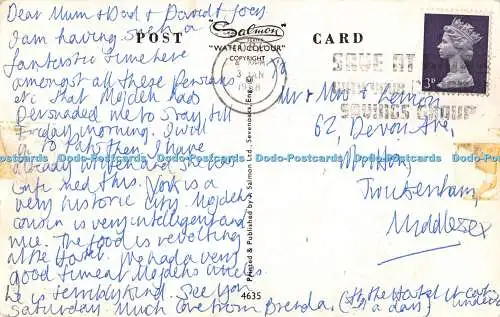 Dear Mum & Dad & David & Joey
I am having such a
fantastic time here
amongst all these Persians
at that Mojdeh has
persuaded me to stay till
Friday morning. I will
to Pats then. I have
already written and she has
confirmed this. York is a
very historic city. Mojdehs
cousin is very intelligent and
nice. The food is revolting
at the Hotel. We had a very
good time at Mojdehs uncles
he is terribly kind. See you
Saturday. Much love from Brenda.
(the Hotel
a day)
POST CARD
Salmon
SERIES
"WATER COLOUR"
COPYRIGHT
JAN
SAVE AT
SAVINGS GROUP
3D
Mr & Mrs Lemon
62, Devon Ave,
Twickenham,
Middlesex
Printed & Published by J. Salmon Ltd., Sevenoaks, Eng.
4635
Dodo-Postcards Dodo-Postcards Dodo-Postcards Dodo-Postcards Dodo-Postcards